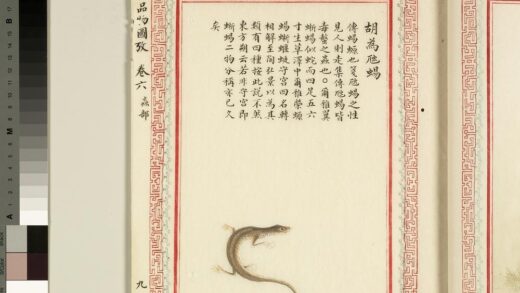 胡為虺蜴
傳蜴螈也箋虺蜴之性
見人則走集傳虺蜴皆
毒螫之蟲也○爾雅翼
蜥蜴似蛇而四足五六
寸生草澤中爾雅蠑螈
蜴蜥蝘蜓守宮四名轉
相解至陶弘景以為其
類有四種按此說不然
東方朔云若非守宮即
蜥蜴二物分稱亦已久
矣
品物圖攷 卷六 蟲部
九